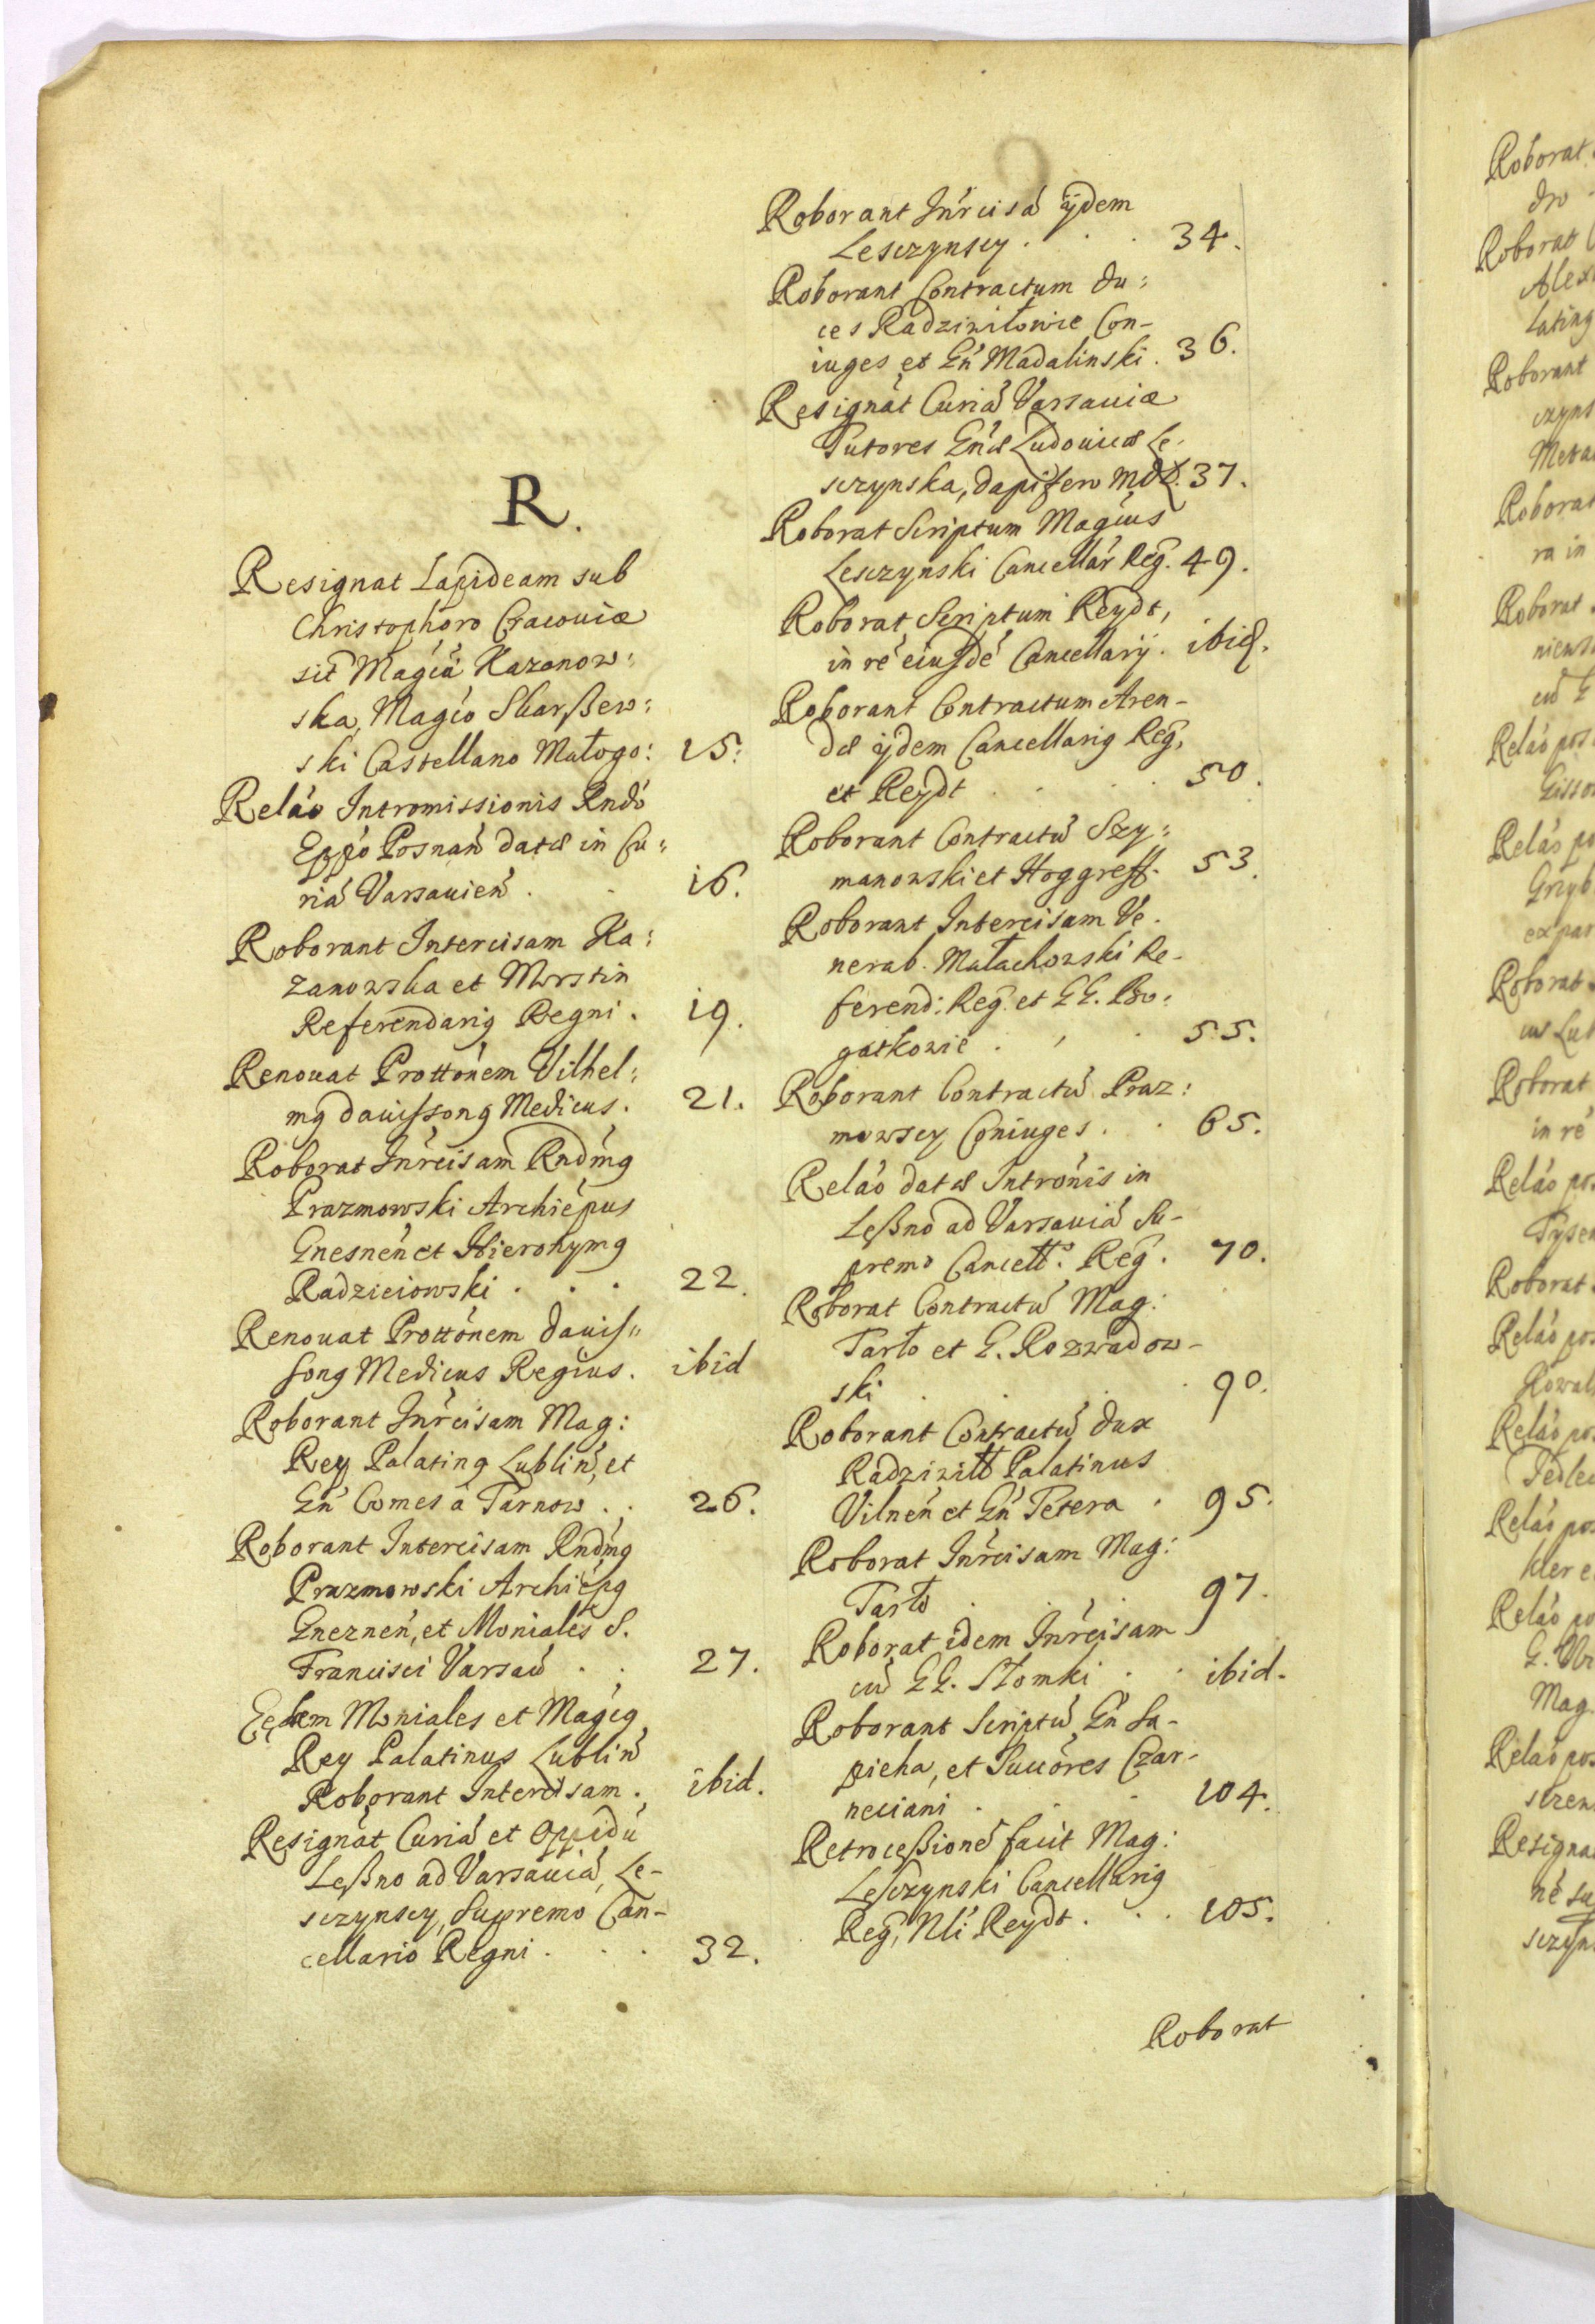 R.
Resignat Lapideam sub
Christophoro Cracoviæ
sit Magca Kazanow:
ska, Magco Skarßew:
ski Castellano Małogo: 15:
Relao Intromissionis Rndo
Eppo Posnan datæ in Cu:
ria Varsavien . . 16.
Roborant Intercisam Ka:
zanowska et Morstin
Referendarig Regni . 19.
Renouat Prottonem Vilhel:
mg dauissong Medicus. 21.
Roborat Inrcisam Rndmg
Prazmowski Archiepus
Gnesnen et Hieronymg
Radzieiowski . . . 22.
Renouat Prottonem dauis"
song Medicus Regius. ibid
Roborant Inrcisam Mag:
Rey Palating Lublin, et
Gn Comes a Tarnow . . 26.
Roborant Intercisam Rndmg
Prazmowski Archiepg
Gneznen, et Moniales S.
Francisci Varsav . . 27.
Eędem Moniales et Magcg
Rey Palatinus Lublin
Roborant Intercisam . ibid.
Resignat Curia et Oppidu
Leßno ad Varsauia, Le-
sczynscy, Supremo Can-
cellario Regni . . . 32.
Roborant Inrcisa ijdem
Lesczynscy . . . 34.
Roborant Contractum du:
ces Radziwiłowie Con-
iuges et Gn Madalinski . 36.
Resignat Curia Varsauiæ
Tutores Gnæ Ludouicæ Le:
sczynska, dapifero MDL. 37.
Roborat Scriptum Magcus
Lesczynski Cancellar Reg. 49.
Roborat Scriptum Reydt,
in re eiusde Cancellarij . ibid.
Roborant Contractum Aren-
dæ ijdem Cancellarig Reg,
et Reydt . . . 50.
Roborant Contractu Szy:
manowski et Hoggreff. 53.
Roborant Intercisam Ve.
nerab. Małachowski Re-
ferend: Reg. et GG. Bro:
gatkowie . . . 55.
Roborant Contractu Praz:
mowscy Coniuges . . 65.
Relao datæ Intronis in
Leßno ad Varsauia Su-
premo Cancell. Reg . 70.
Roborat Contractu Mag:
Tarło et G. Rozwadow-
ski . . . . 90.
Roborant Contractu dux
Radziwill Palatinus
Vilnen et Gn Petera . 95.
Roborat Inrcisam Mag:
Tarło . . . 97.
Roborat idem Inrcisam
cu GG. Słomki . . ibid.
Roborant Scriptu Gn Sa-
pieha, et Succores Czar-
neciani . . . 104.
Retroceßione facit Mag:
Lesczynski Cancellarig
Reg, Nli Reydt . . . 105.
Roborat
Roborat
Roborat
Alex
Lating
Roborant
czyns
Roborat
ra in
Roborat
Relao pos
Relao po
Grzyb
ex par
Roborat
Roborat
in re
Relao pos
Roborat
Relao pos
Kowal
Relao pos
Relao pos
Relao po
Mag.
Relao pos
Resigna